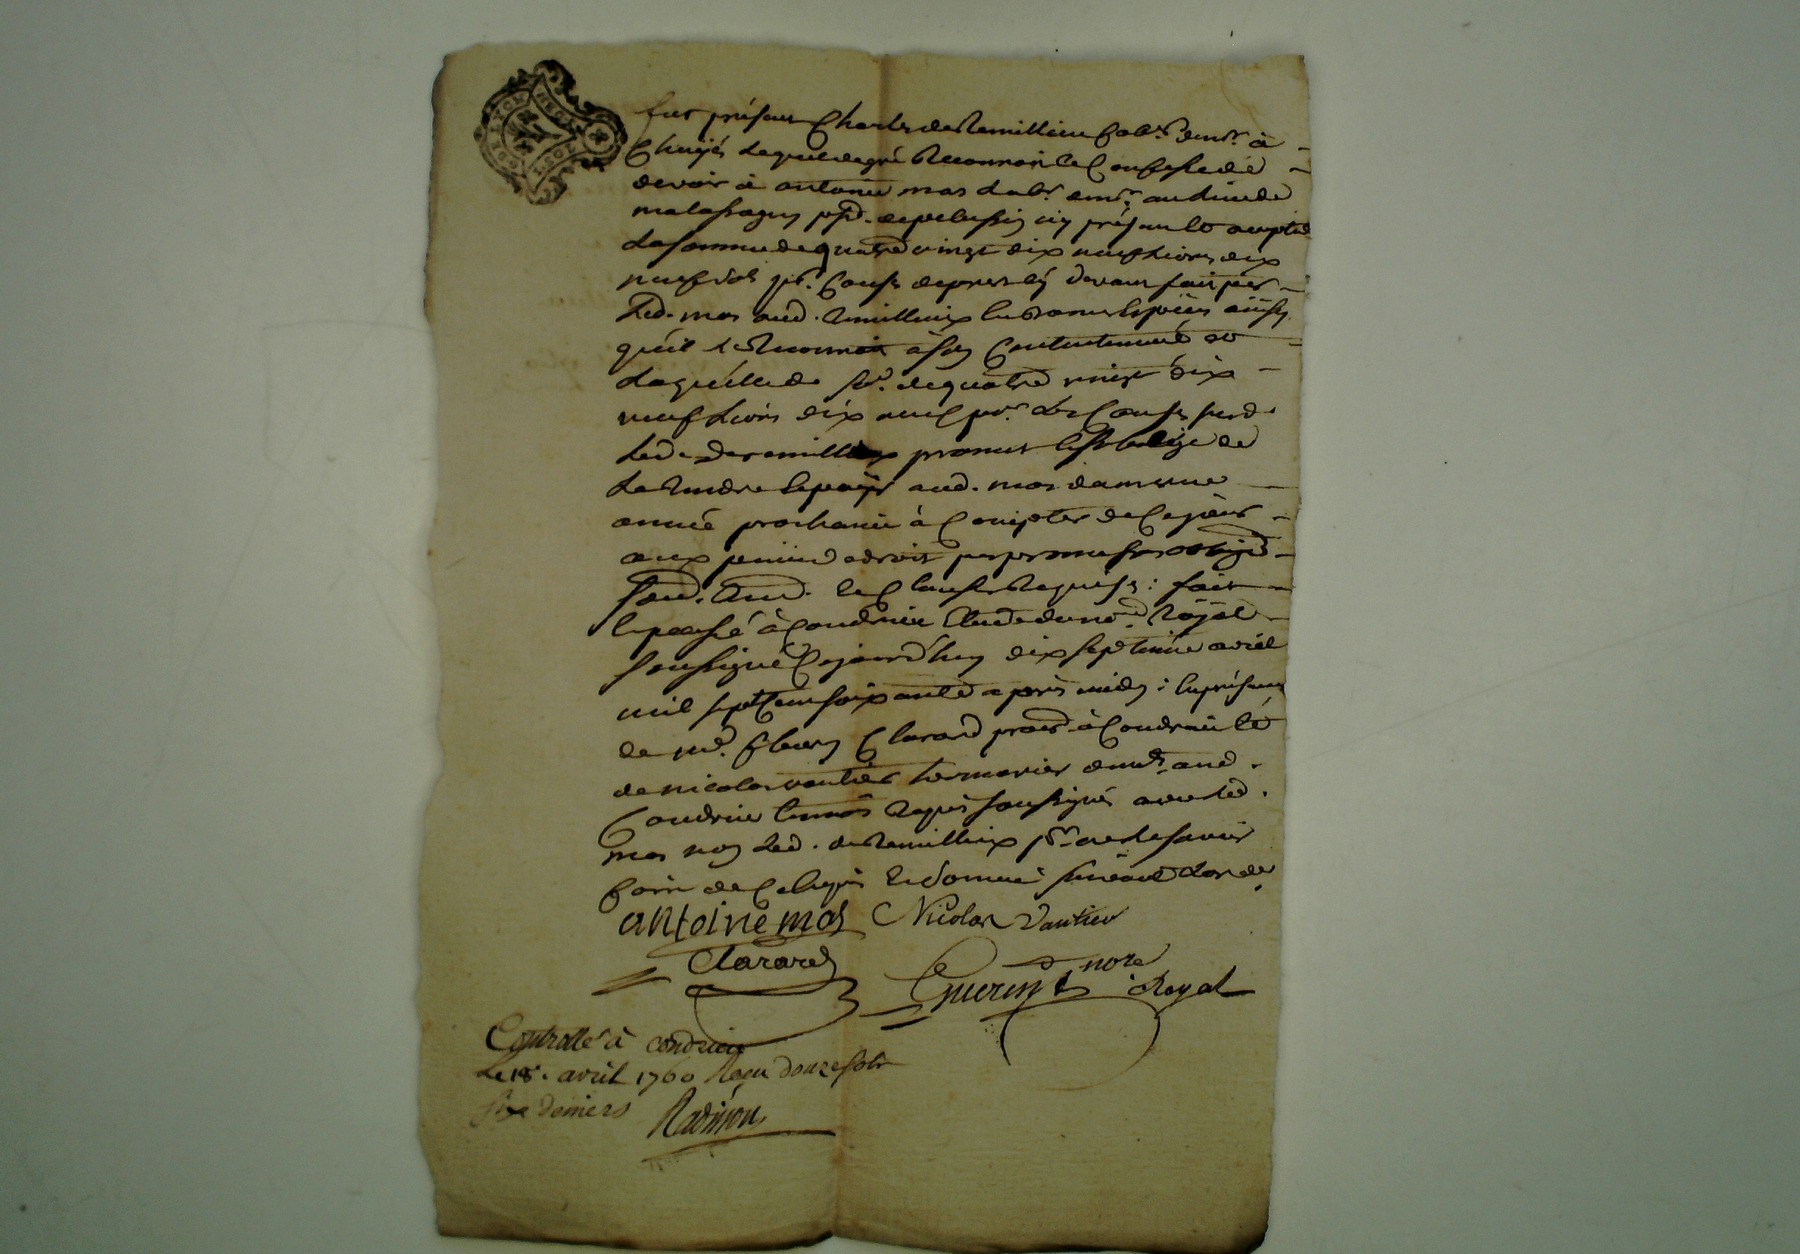 fut présent Charles de Remillieu lab.r dem.t à
Chuyés lequel de gré Reconnoit et Confesse de
devoir à antoine mas lab.r dem.t au lieu de
malassagny psse. de pelussin icy présent et acceptant
la somme de quatre vingt dix neuf livres dix
neuf sols pr. Cause de prest cy devant fait par
led. mas aud. Remillieux en bonnes espèces ainsy
qu'il le Reconnoit à son Contentement et
laquelle de se. de quatre vingt dix
neuf livres dix neuf pr. les Causes susd.
led. de Remillieux promet et s'oblige de
le Rendre et payer aud. mas dans une
année prochaine à Compter de Ce jour
aux peines de droit par promesses oblige
soud. Rend. et Clauses Requises : fait
et passé à Condrieu Etude du no.re Royal
soussigné Cejourd'huy dix septieme avril
mil sept Cent soixante après midy : en présence
de me. fleury Clarard prat. à Condrieu et
de nicolas vantier dem.t aud.
Condrieu temoins Requis soussignés avec led.
mas non led. de Remillieux pr. ne le savoir
faire de Ce Enquis et sommé suivant l'orde.
antoine mas Nicolas Vantier
Clarard
Guerin nore Royal
Controllé à condrieu
Le 18. avril 1760 Reçu douze sols
six deniers